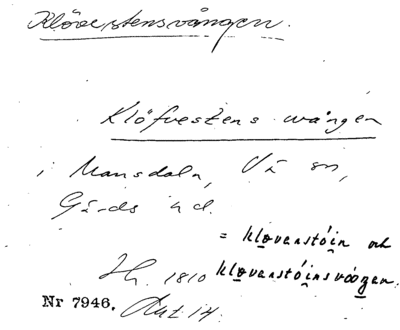 Klövestensvången.
Klöfvestens wången
i Mansdala, Vä sn,
Gärds hd.
= klovenstóin och
Jh. 1810 klovenstóinsvóŋen.
Nr 7946. Akt 14.